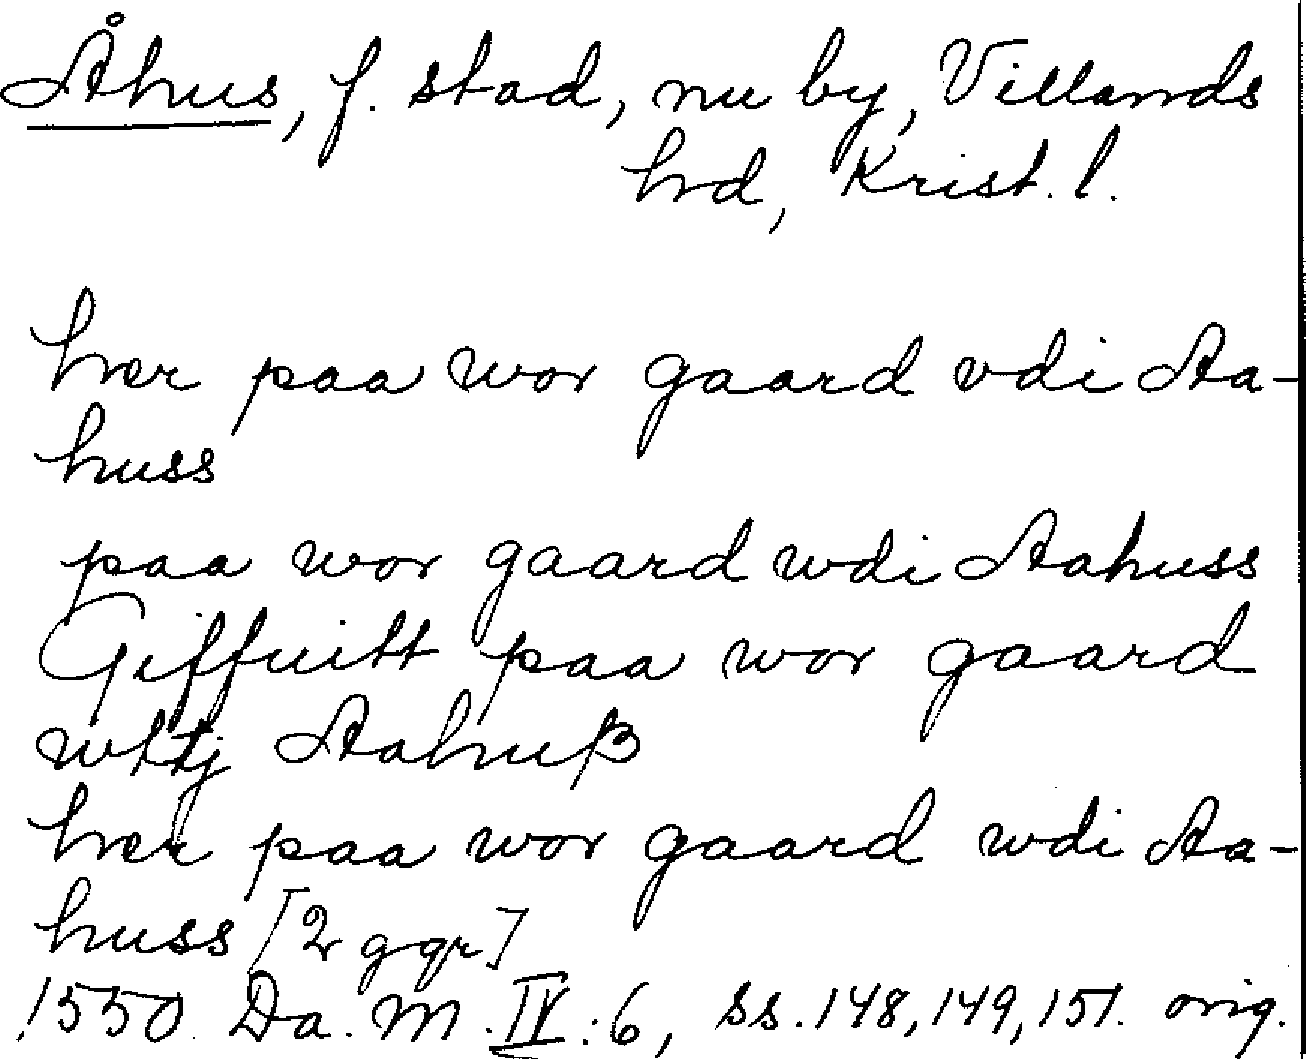 Åhus, f. stad, nu by, Villands
hrd, Krist. l.
her paa wor gaard vdi Aa-
huss
paa wor gaard wdi Aahuss
Giffuitt paa wor gaard
wttj Aahuß
her paa wor gaard wdi Aa-
huss [2 ggr]
1550. Da. M. IV. 6, ss. 148, 149, 151. orig.